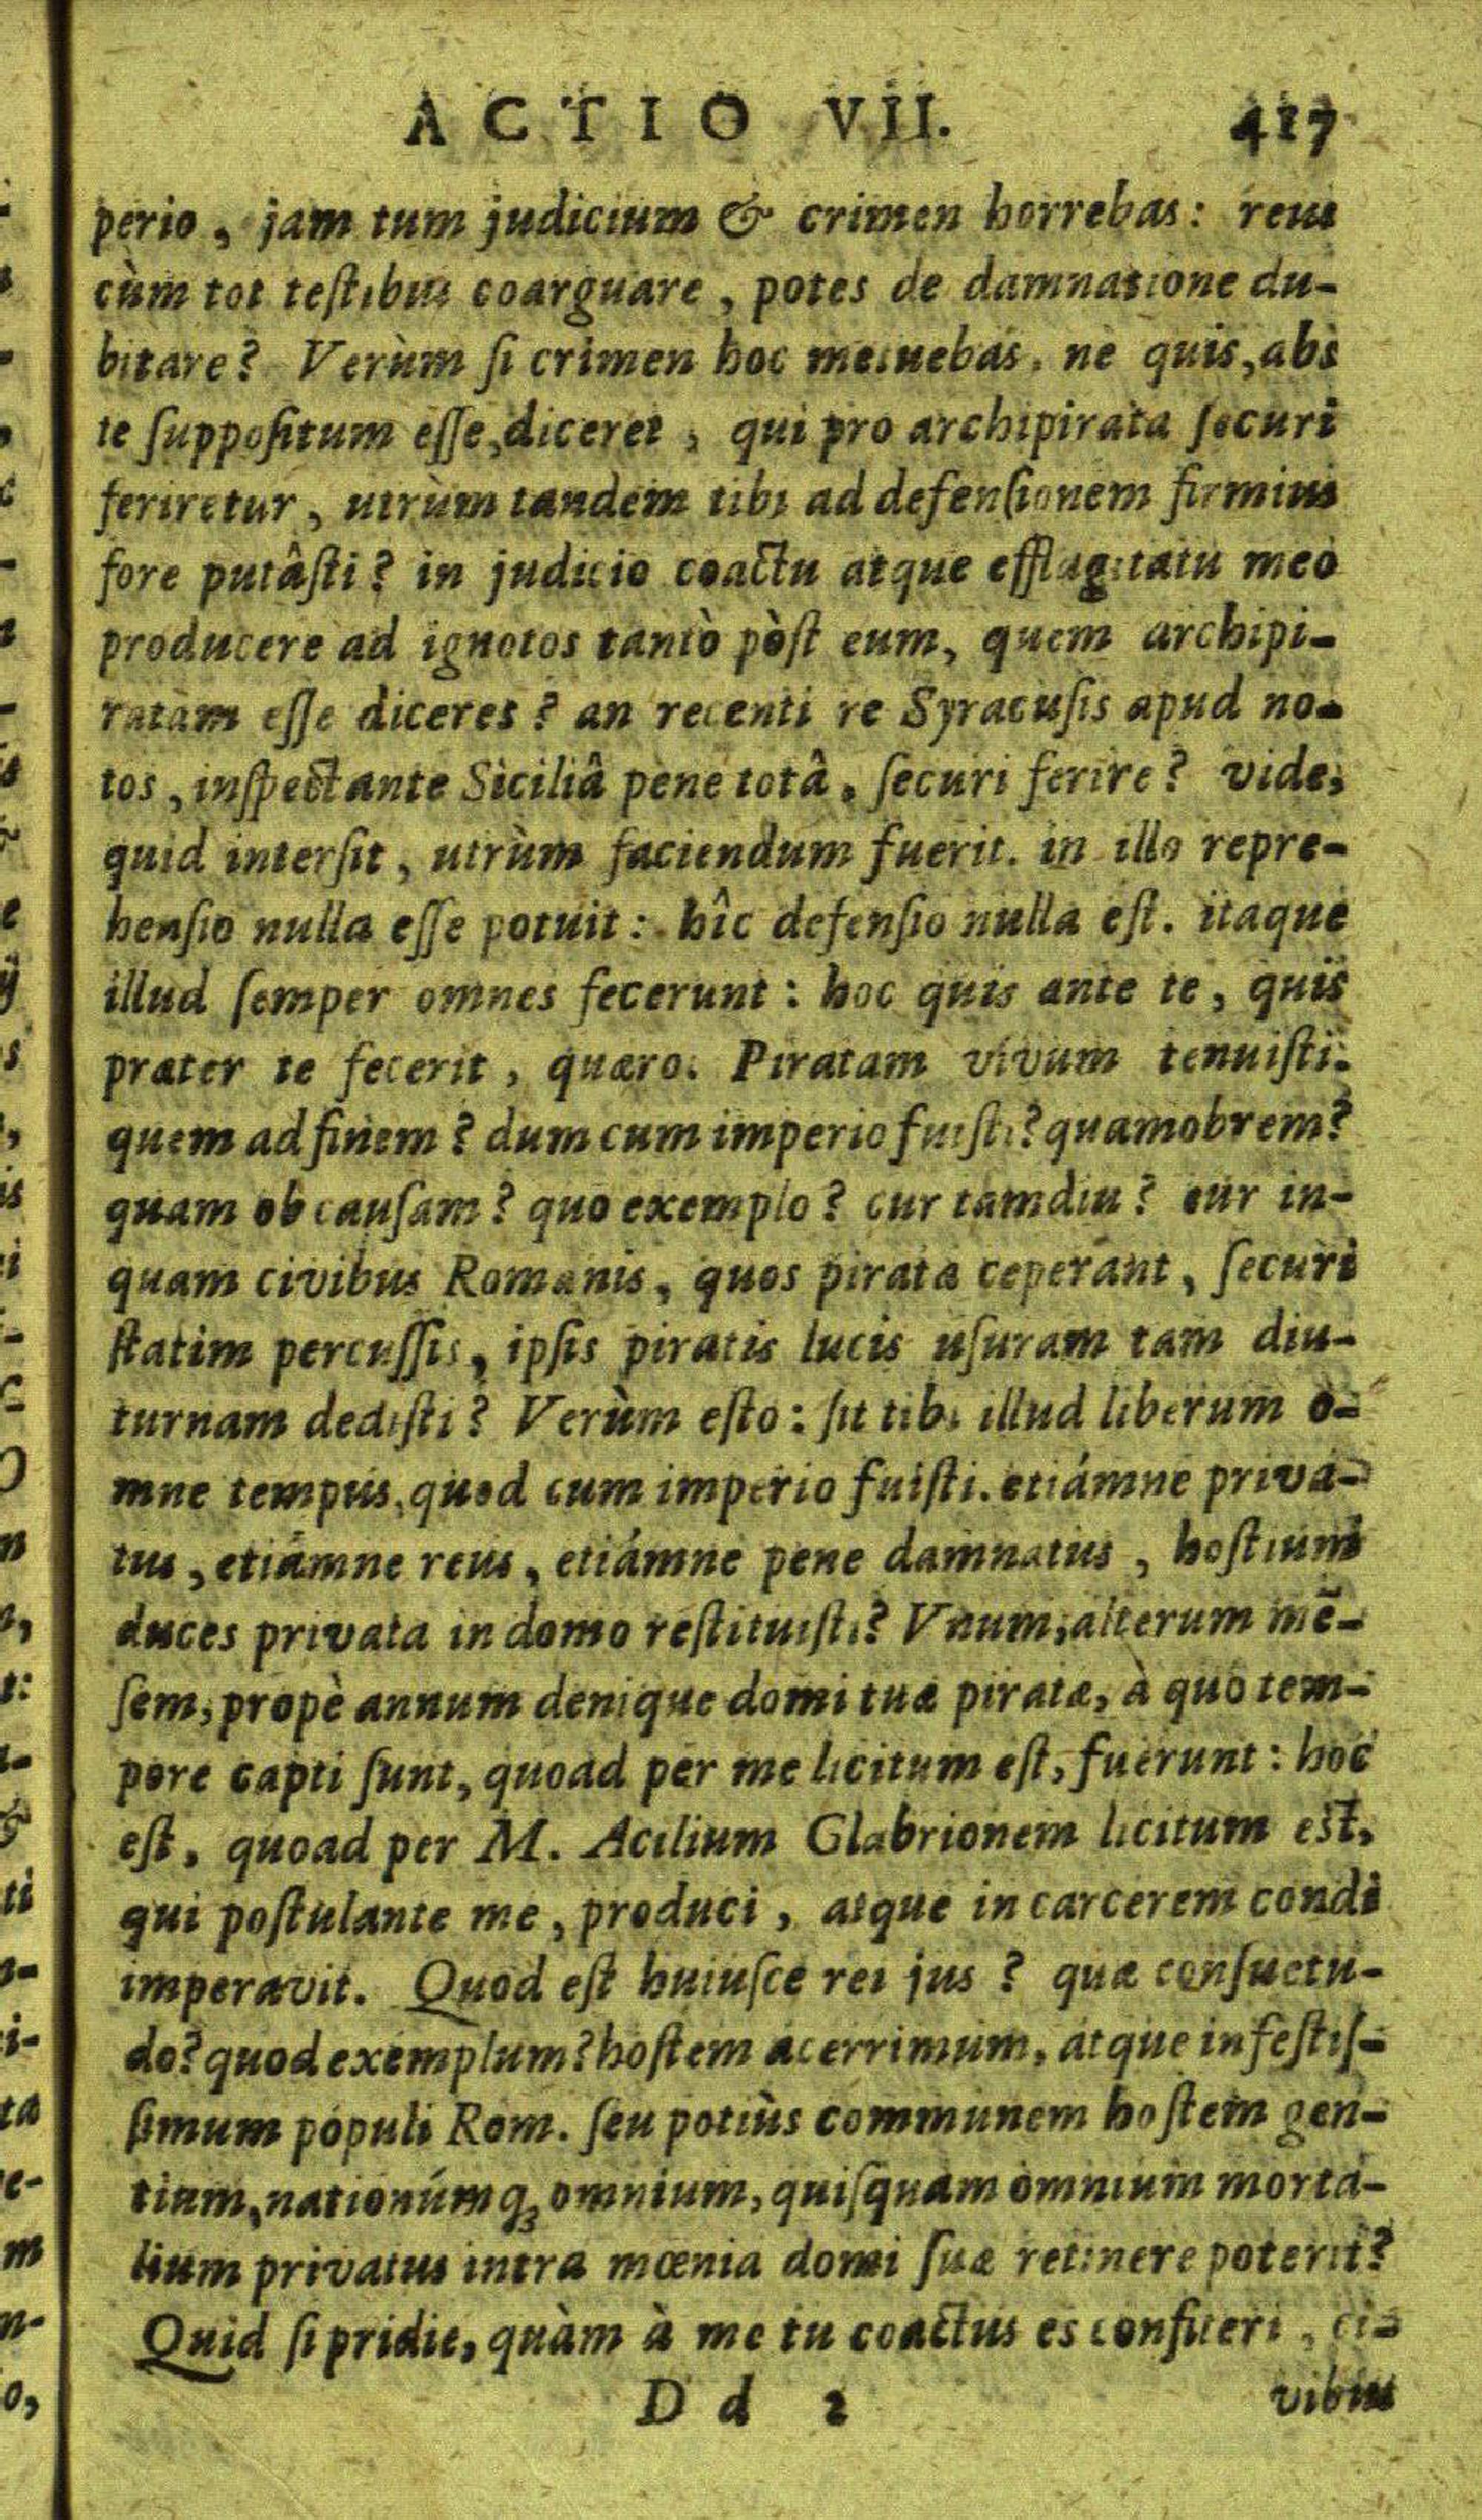 ACTIO VII. 417
perio, jam tum judicium & crimen horrebas: reus
cùm tot teſtibus coarguare, potes de damnatione du-
bitare? Verùm ſi crimen hoc metuebas, ne quis, abs
te ſuppoſitum eſſe, diceret, qui pro archipirata ſecuri
feriretur, utrùm tandem tibi ad defenſionem firmius
fore putâſti? in judicio coactu atque efflagitatu meo
producere ad ignotos tantò pòſt eum, quem archipi-
ratam eſſe diceres? an recenti re Syracuſis apud no-
tos, inſpectante Siciliâ pene totâ, ſecuri ferire? vide,
quid interſit, utrùm faciendum fuerit. in illo repre-
henſio nulla eſſe potuit: hîc defenſio nulla eſt. itaque
illud ſemper omnes fecerunt: hoc quis ante te, quis
præter te fecerit, quæro. Piratam vivum tenuiſti.
quem ad finem? dum cum imperio fuiſti? quamobrem?
quam ob cauſam? quo exemplo? cur tamdiu? cur in-
quam civibus Romanis, quos piratæ ceperant, ſecuri
ſtatim percuſſis, ipſis piratis lucis uſuram tam diu-
turnam dediſti? Verùm eſto: ſit tibi illud liberum o-
mne tempus, quod cum imperio fuiſti. etiámne priva-
tus, etiámne reus, etiámne pene damnatus, hoſtium
duces privata in domo reſtituiſti? Vnum, alterum mē-
ſem, propè annum denique domi tuæ piratæ, à quo tem-
pore capti ſunt, quoad per me licitum eſt, fuerunt: hoc
eſt, quoad per M. Acilium Glabrionem licitum eſt,
qui poſtulante me, produci, atque in carcerem condi
imperavit. Quod eſt huiuſce rei jus? quæ conſuetu-
do? quod exemplum? hoſtem acerrimum, atque infeſtiſ-
ſimum populi Rom. ſeu potiùs communem hoſtem gen-
tium, nationúmq; omnium, quiſquam omnium morta-
lium privatus intra mœnia domi ſuæ retinere poterit?
Quid ſi pridie, quàm à me tu coactus es confiteri, ci-
D d 2 vibus